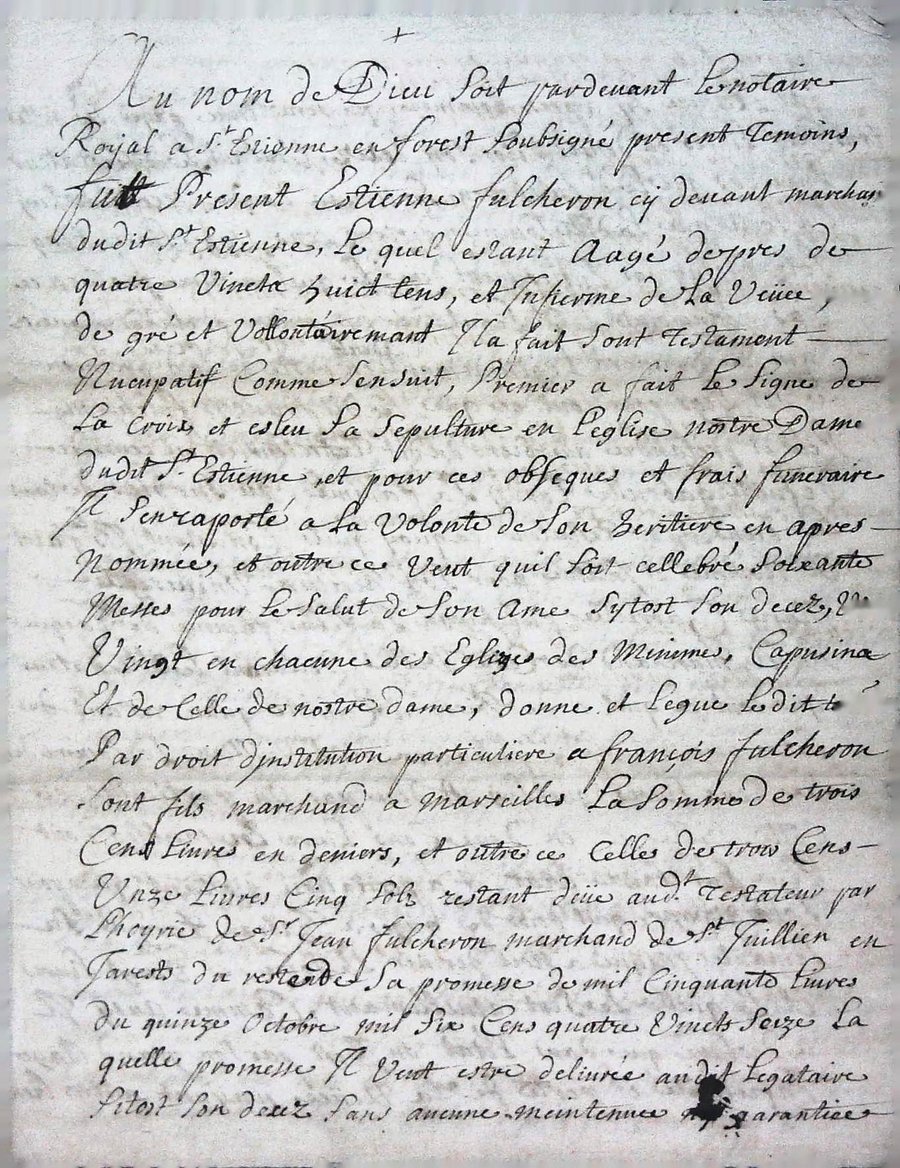 Au nom de Dieu soit pardevant le notaire
Royal a St. Estienne en forest soubsigné present Temoins,
fust Present Estienne fulcheron cy devant marchan
dudit St. Estienne, Le quel estant Aagé de pres de
quatre Vincts huict tens, et Infirme de La Veüee,
de gré et Vollontairemant Il a fait sont testament
Nucupatif Comme Sensuit, Premier a fait le signe de
La Croix, et esleu Sa Sepulture en l'eglise nostre Dame
dudit St. Estienne, et pour ces obseques et frais funeraire
Il Sen raporté a La Volonte de son heritiere en apres
Nommée, et outre ce Veut quil soit cellebré Soixante
Messes pour Le Salut de Son Ame Sytost Son decez,
Vingt en chacune des Eglizes des Minimes, Capusins
Et de Celle de nostre dame, donne et legue le dit
Par droit d'institution particuliere a françois fulcheron
Sont fils marchand a Marseilles La Somme de trois
Cens Livres en deniers, et outre ce Celle de trois Cens
Unze Livres Cinq Solz restant deüe audt. Testateur par
L'hoyrie de Sr. Jean fulcheron marchand de St. Juillien en
Jarests du reste de Sa promesse de mil Cinquante Livres
du quinze Octobre mil Six Cens quatre Vincts Seize La
quelle promesse Il Veut estre delivrée audit Legataire
Sitost Son decez Sans aucune meintenue garantiee